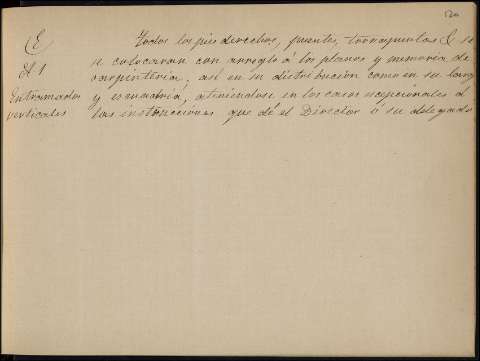 120
(E)
Todos los pies derechos, puentes, tornapuntas & se
A 1
colocaran con arreglo á los planos y memoria de
carpintería, así en su distribución como en su largo
Entramados
y escuadría, ateniendose en los casos excepcionales á
verticales
las instrucciones que dé el Director ó su delegado